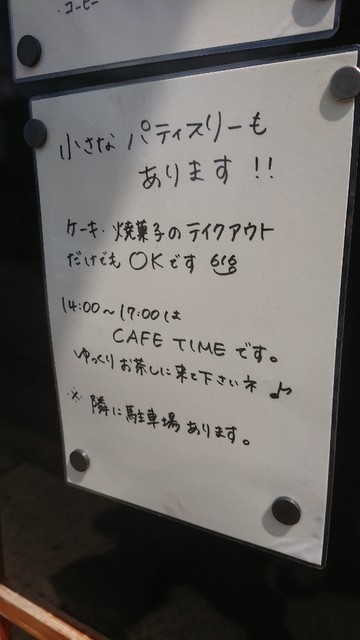 ・コーヒー
小さな パティスリーも
あります!!
ケーキ・焼菓子のテイクアウト
だけでも OKです
14:00〜17:00は
CAFE TIME です。
ゆっくりお茶しに来て下さいネ♪
※ 隣に駐車場あります。